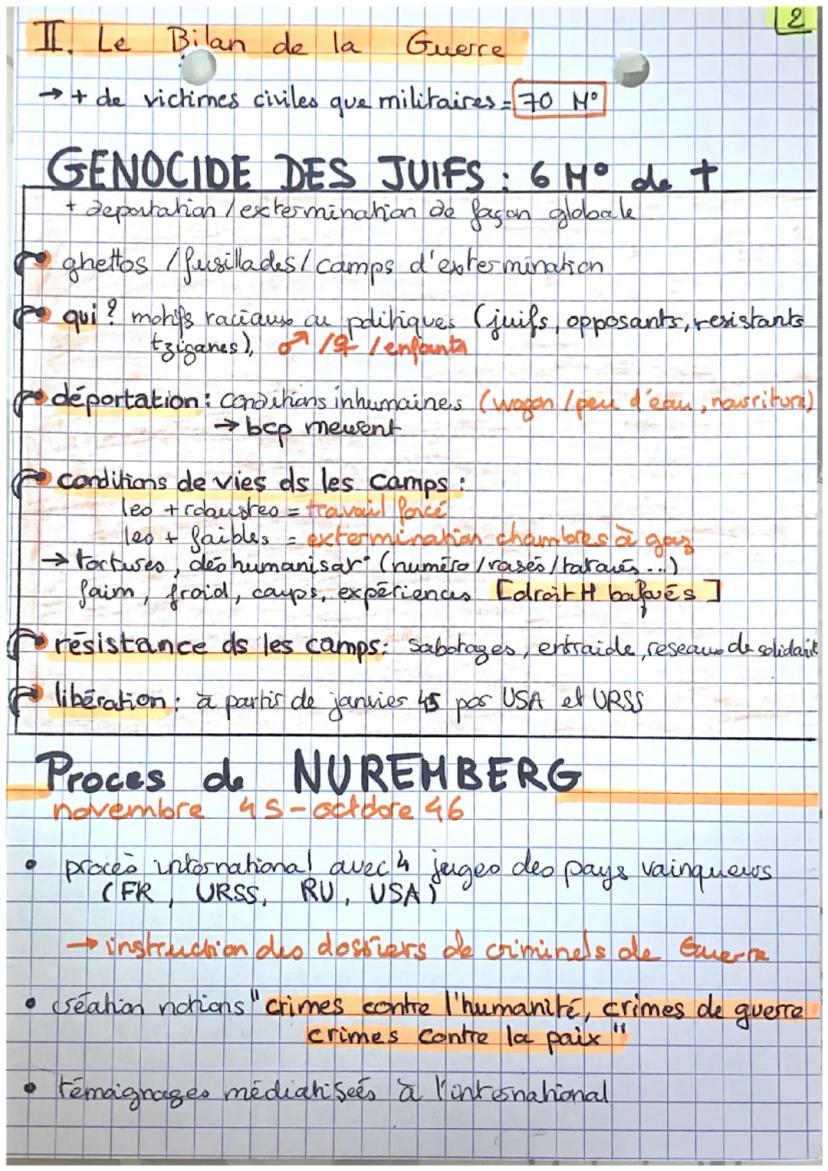 2
II. Le Bilan de la Guerre
→ + de victimes civiles que militaires = 70 M°
GENOCIDE DES JUIFS : 6 M° de +
+ deportation / extermination de façon globale
ghettos / fusillades / camps d'extermination
qui ? motifs raciaux ou politiques (juifs, opposants, resistants
tziganes), ♂ / ♀ / enfants
déportation : conditions inhumaines (wagon / peu d'eau, nourriture)
→ bcp meurent
conditions de vies ds les camps :
les + robustes = travail forcé
les + faibles = extermination chambres à gaz
→ tortures, déshumanisat° (numéro / rasés / tatoués ...)
faim, froid, coups, expériences [droit H bafoués]
résistance ds les camps : sabotages, entraide, reseaux de solidarit
libération : à partir de janvier 45 par USA et URSS
Proces de NUREMBERG
novembre 45 - octobre 46
• procès international avec 4 juges des pays vainqueurs
(FR, URSS, RU, USA)
→ instruction des dossiers de criminels de Guerre
• création notions "crimes contre l'humanité, crimes de guerre
crimes contre la paix"
• témoignages médiatisés à l'international